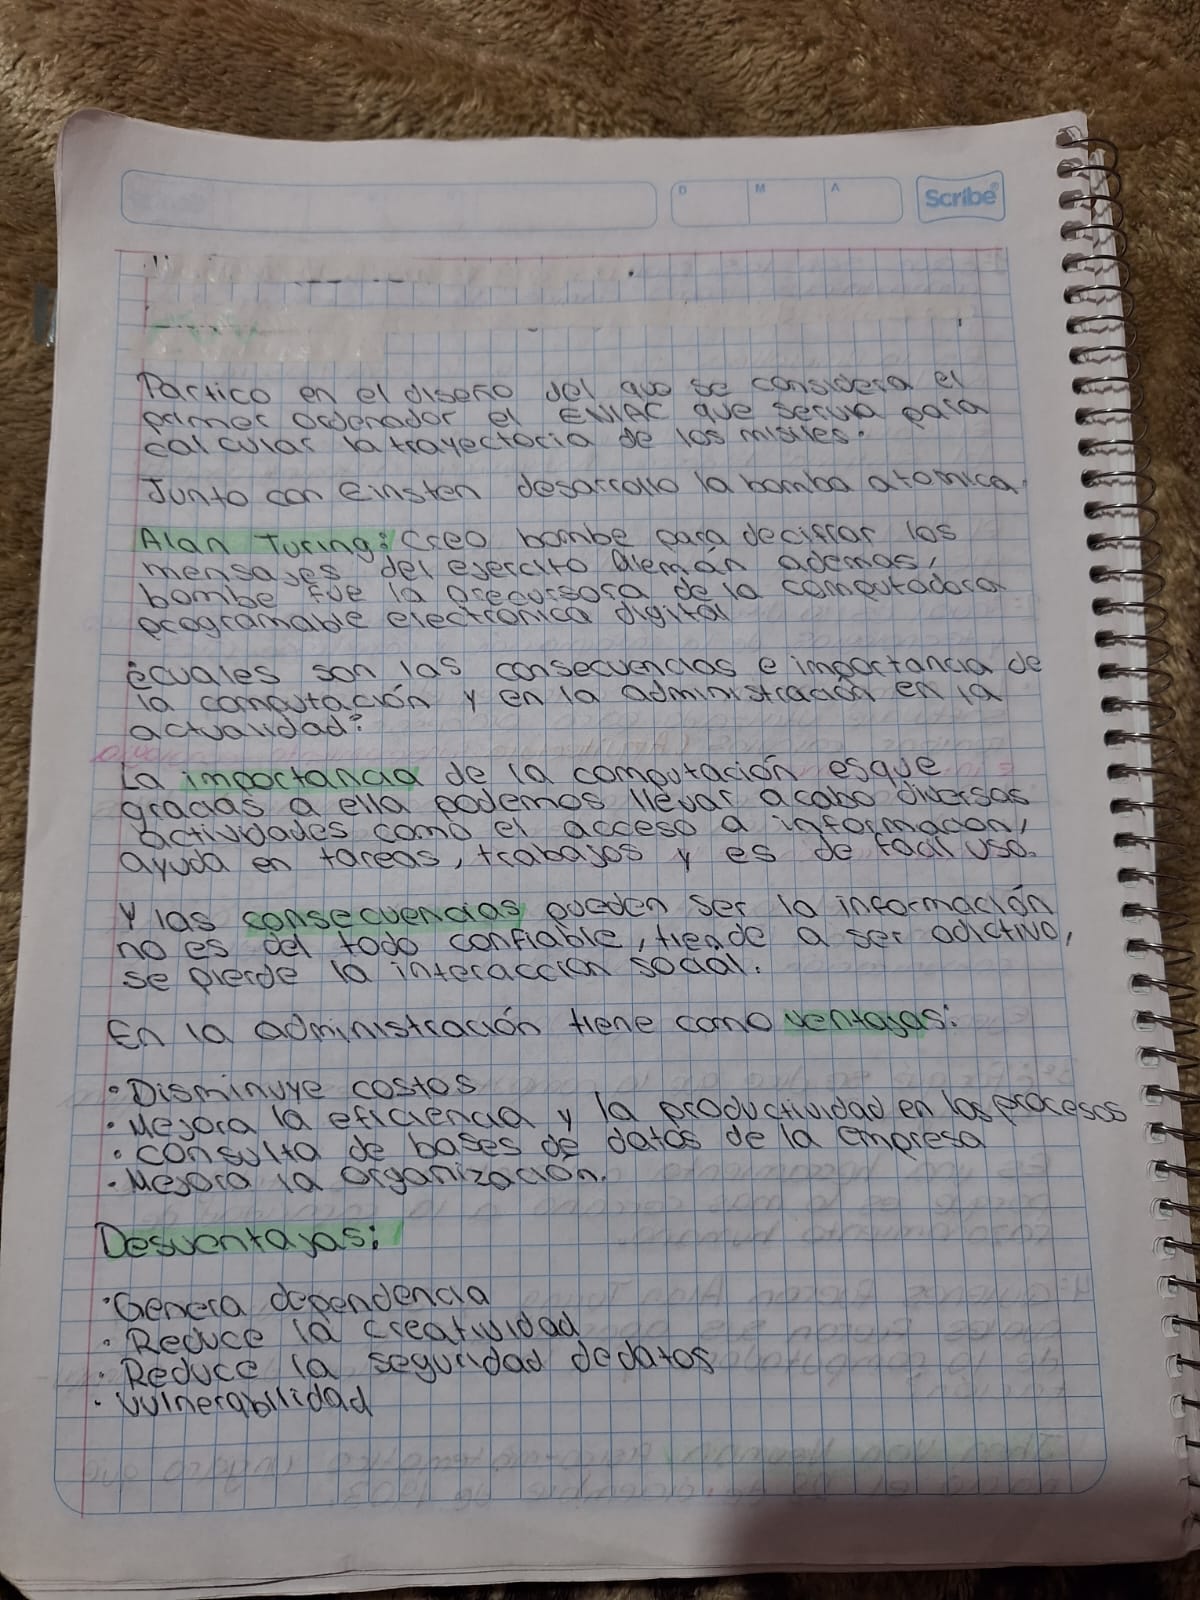 D M A
Scribe
Partico en el diseño del que se considera el
primer ordenador el ENIAC que servia para
calcular la trayectoria de los misiles.
Junto con Einsten desarrollo la bomba atomica.
Alan Turing: Creo bombe para decifrar los
mensajes del ejercito Alemán ademas,
bombe fue la precursora de la computadora
programable electronica digital
¿cuales son las consecuencias e importancia de
la computación y en la administración en la
actualidad?
La importancia de la computación esque
gracias a ella podemos llevar acabo diversas
actividades como el acceso a informacon,
ayuda en tareas, trabajos y es de facil uso.
Y las consecuencias pueden ser la información
no es del todo confiable, tiende a ser adictivo,
se pierde la interaccion social.
En la administración tiene como ventajas:
• Disminuye costos
• Mejora la eficiencia y la productividad en los procesos
• consulta de bases de datos de la empresa
• Mejora la organización.
Desventajas:
• Genera dependencia
• Reduce la creatividad
• Reduce la seguridad de datos
• Vulnerabilidad